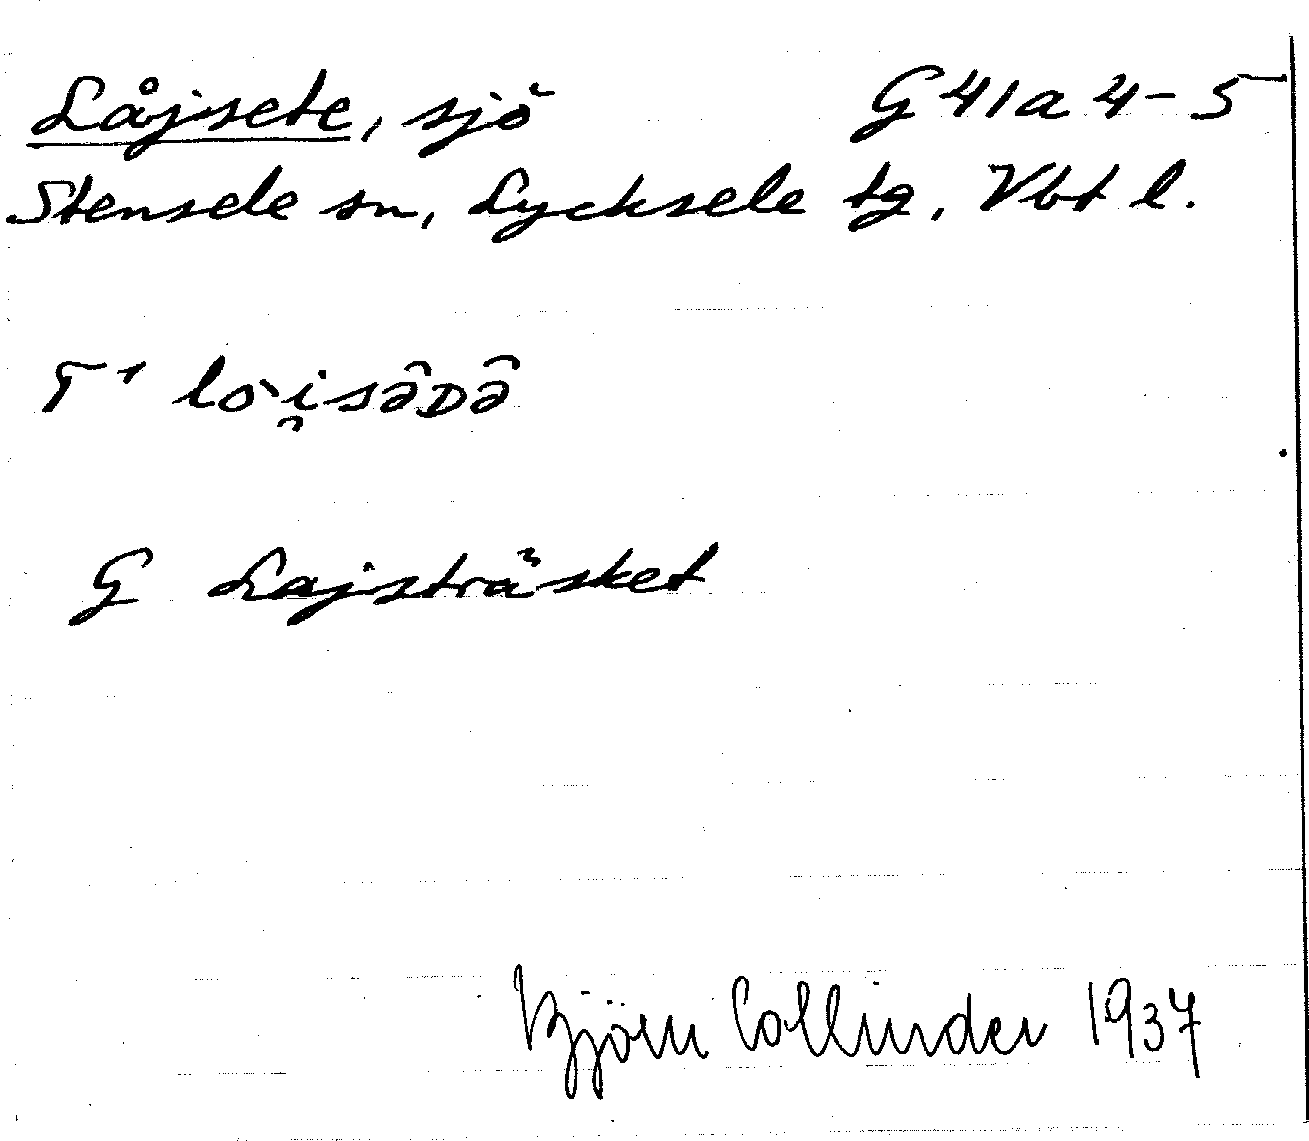 Låjsete, sjö G 41a 4-5
Stensele sn, Lycksele tg, Vbt l.
T1 lo`i̯sə̂ᴅə̂
G Lajsträsket
Björn Collinder 1937